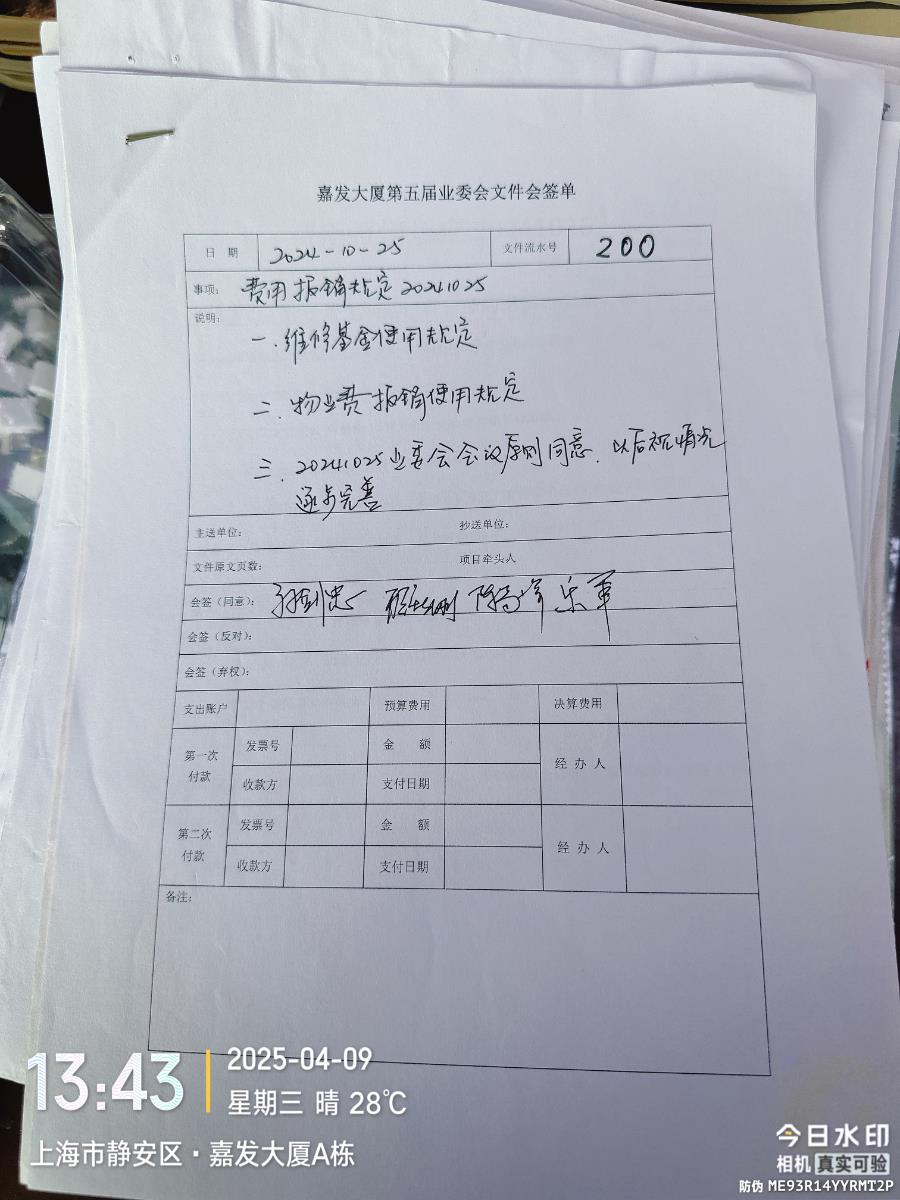 嘉发大厦第五届业委会文件会签单
日 期 2024-10-25 文件流水号 200
事项: 费用报销规定 20241025
说明:
一. 维修基金使用规定
二. 物业费报销使用规定
三. 20241025业委会会议原则同意. 以后视情况
逐步完善
主送单位: 抄送单位:
文件原文页数: 项目牵头人
会签（同意）:
会签（反对）:
会签（弃权）:
支出账户 预算费用 决算费用
第一次付款 发票号 金 额 经 办 人
收款方 支付日期
第二次付款 发票号 金 额 经 办 人
收款方 支付日期
备注:
13:43 2025-04-09
星期三 晴 28℃
上海市静安区·嘉发大厦A栋
今日水印
相机 真实可验
防伪 ME93R14YYRMT2P